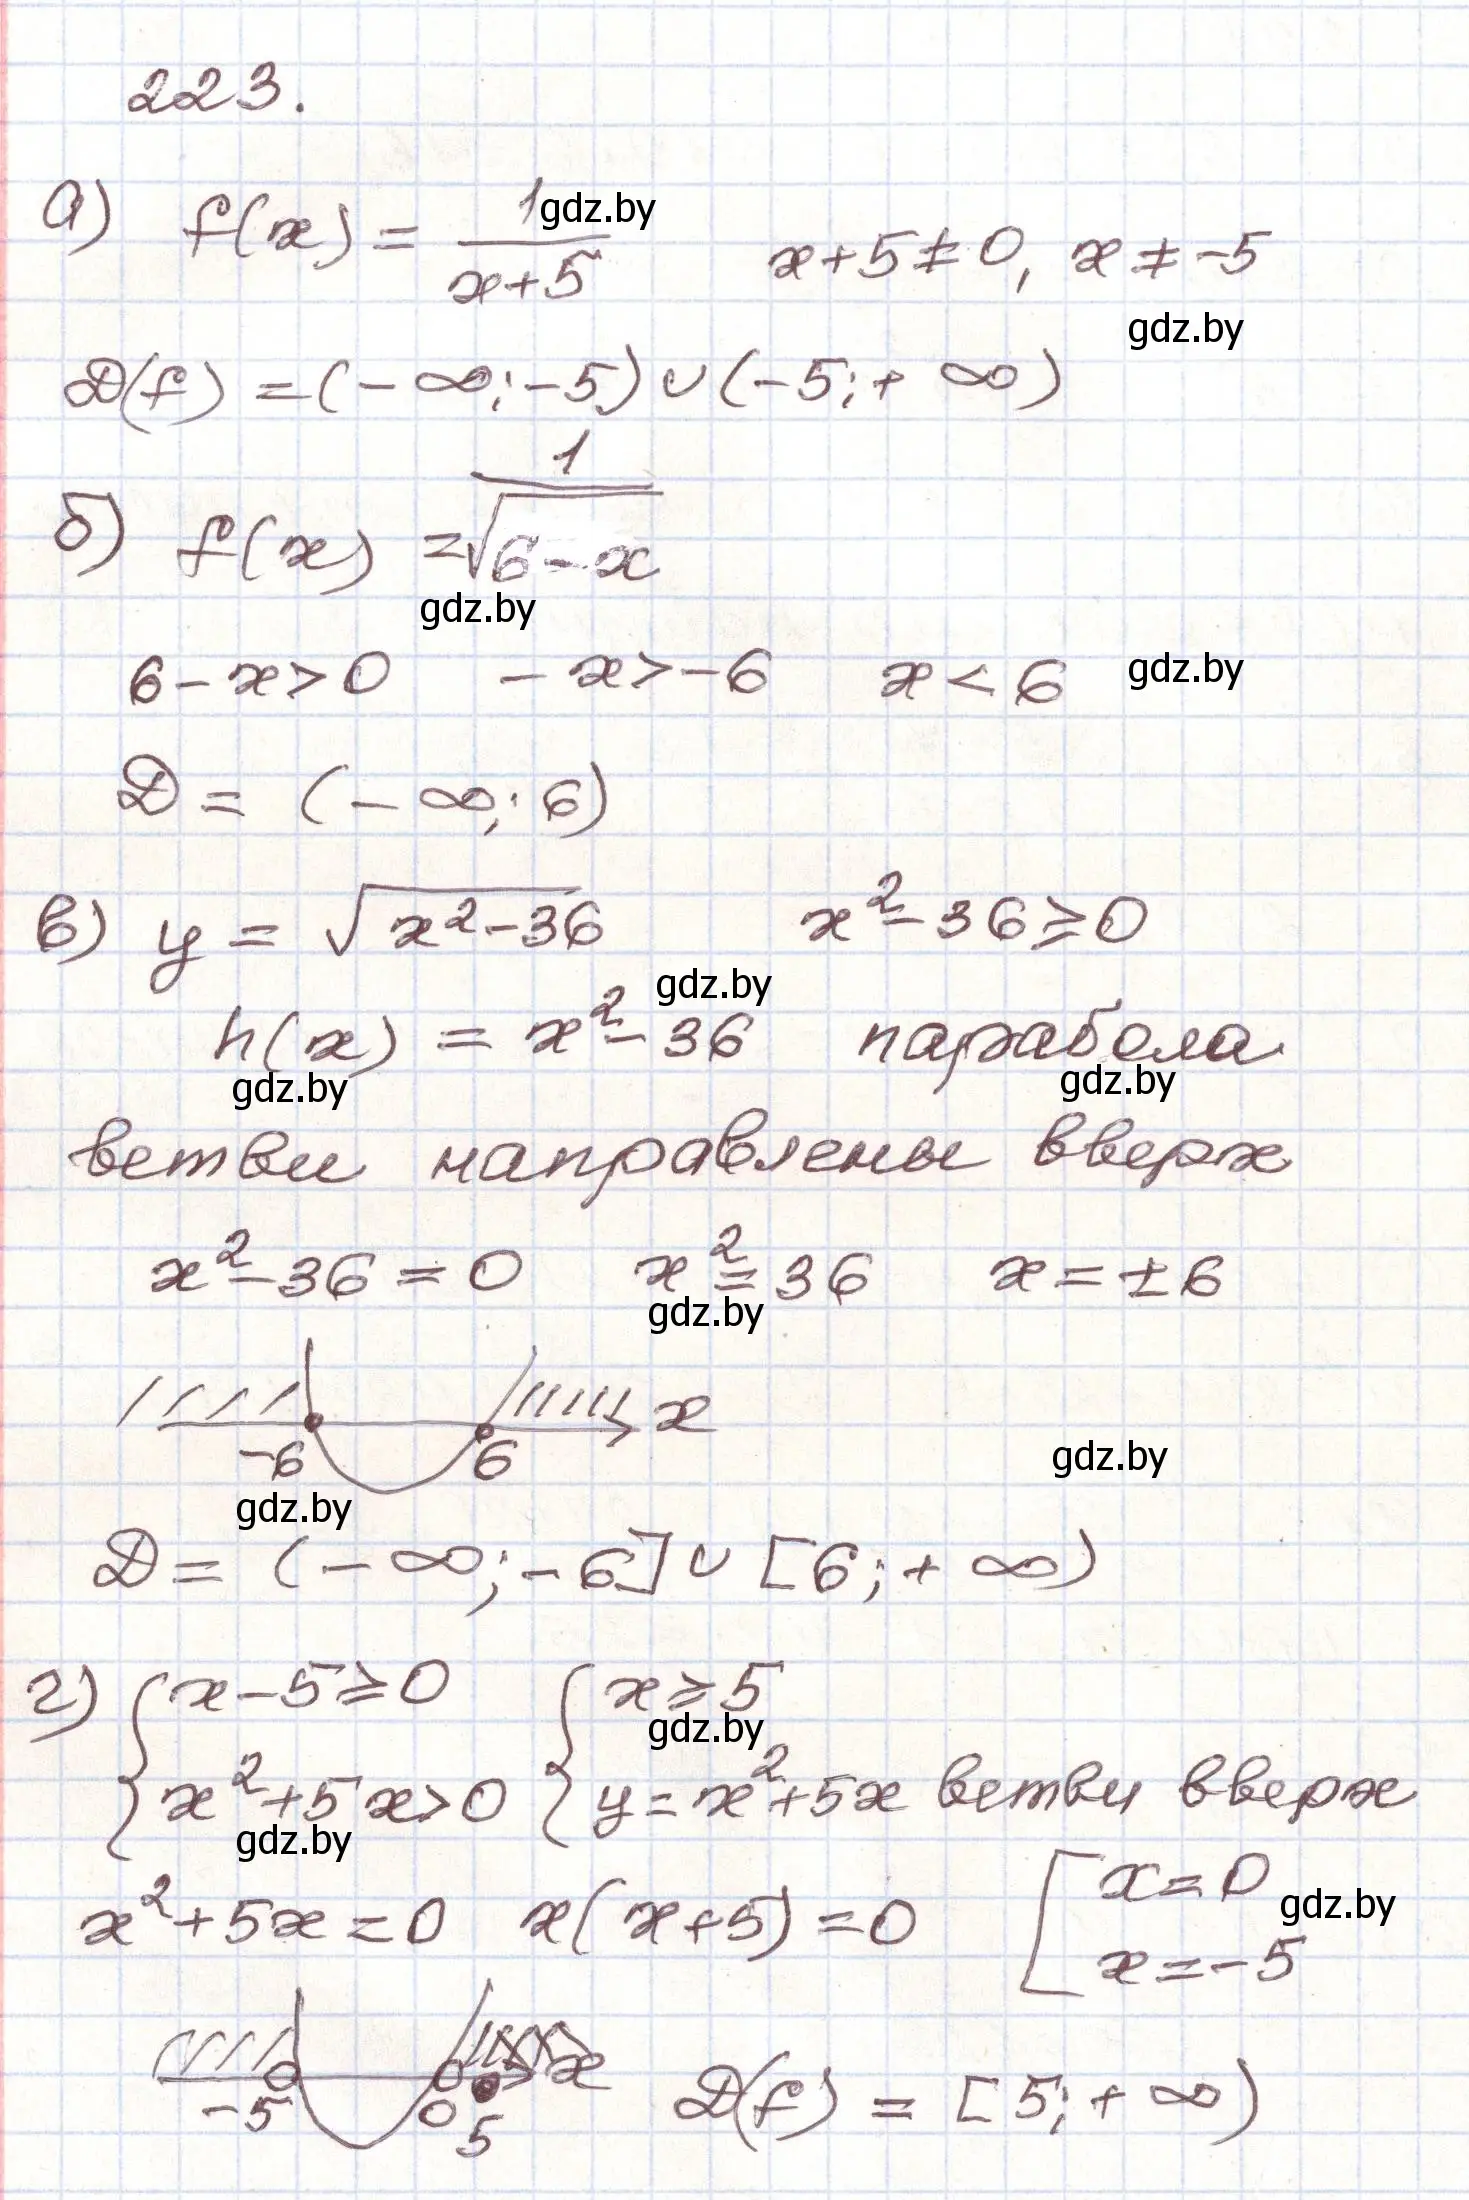 223.
а) f(x) = 1/(x+5)   x+5≠0, x≠-5
gdz.by
gdz.by
D(f) = (-∞;-5)∪(-5;+∞)
б) f(x) = 1/√(6-x)
gdz.by
6-x>0   -x>-6   x<6
gdz.by
D = (-∞;6)
в) y = √(x²-36)   x²-36≥0
gdz.by
h(x) = x²-36 парабола
gdz.by gdz.by
ветви направлены вверх
x²-36=0   x²=36   x=±6
gdz.by
x
-6 6
gdz.by
gdz.by
D = (-∞;-6]∪[6;+∞)
г) { x-5≥0   { x≥5
gdz.by
{ x²+5x>0   { y=x²+5x ветви вверх
gdz.by
x²+5x=0   x(x+5)=0   [ x=0
gdz.by
[ x=-5
x
-5 0 5   D(f) = [5;+∞)